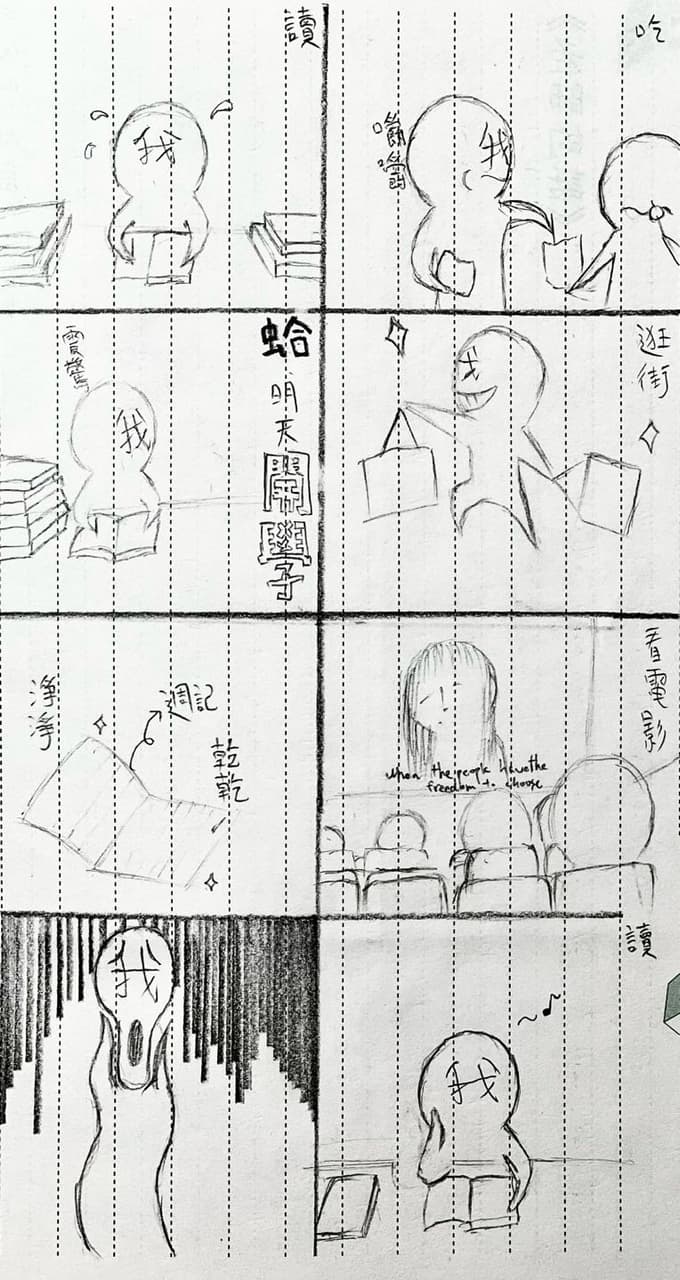 吃
我
嚼嚼
逛街
我
看電影
when the people have the
freedom to choose
讀
我
讀
我
蛤
明天開學
我
震驚
乾乾
週記
淨淨
我